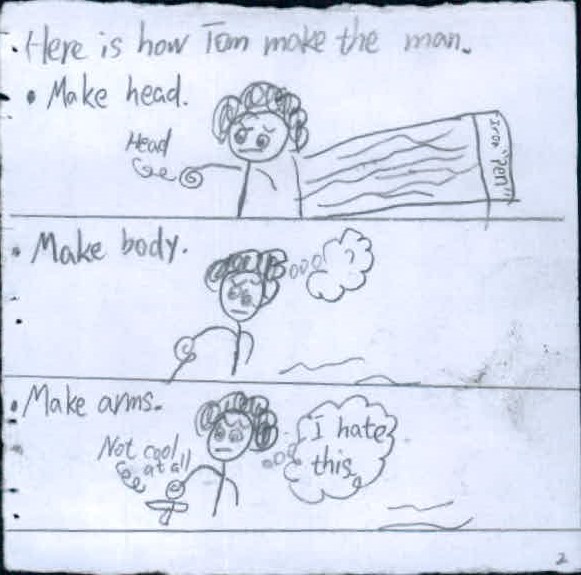 . Here is how Tom make the man.
• Make head.
Head
Iron "Pen"
• Make body.
?
• Make arms.
Not cool
at all
I hate
this.
2